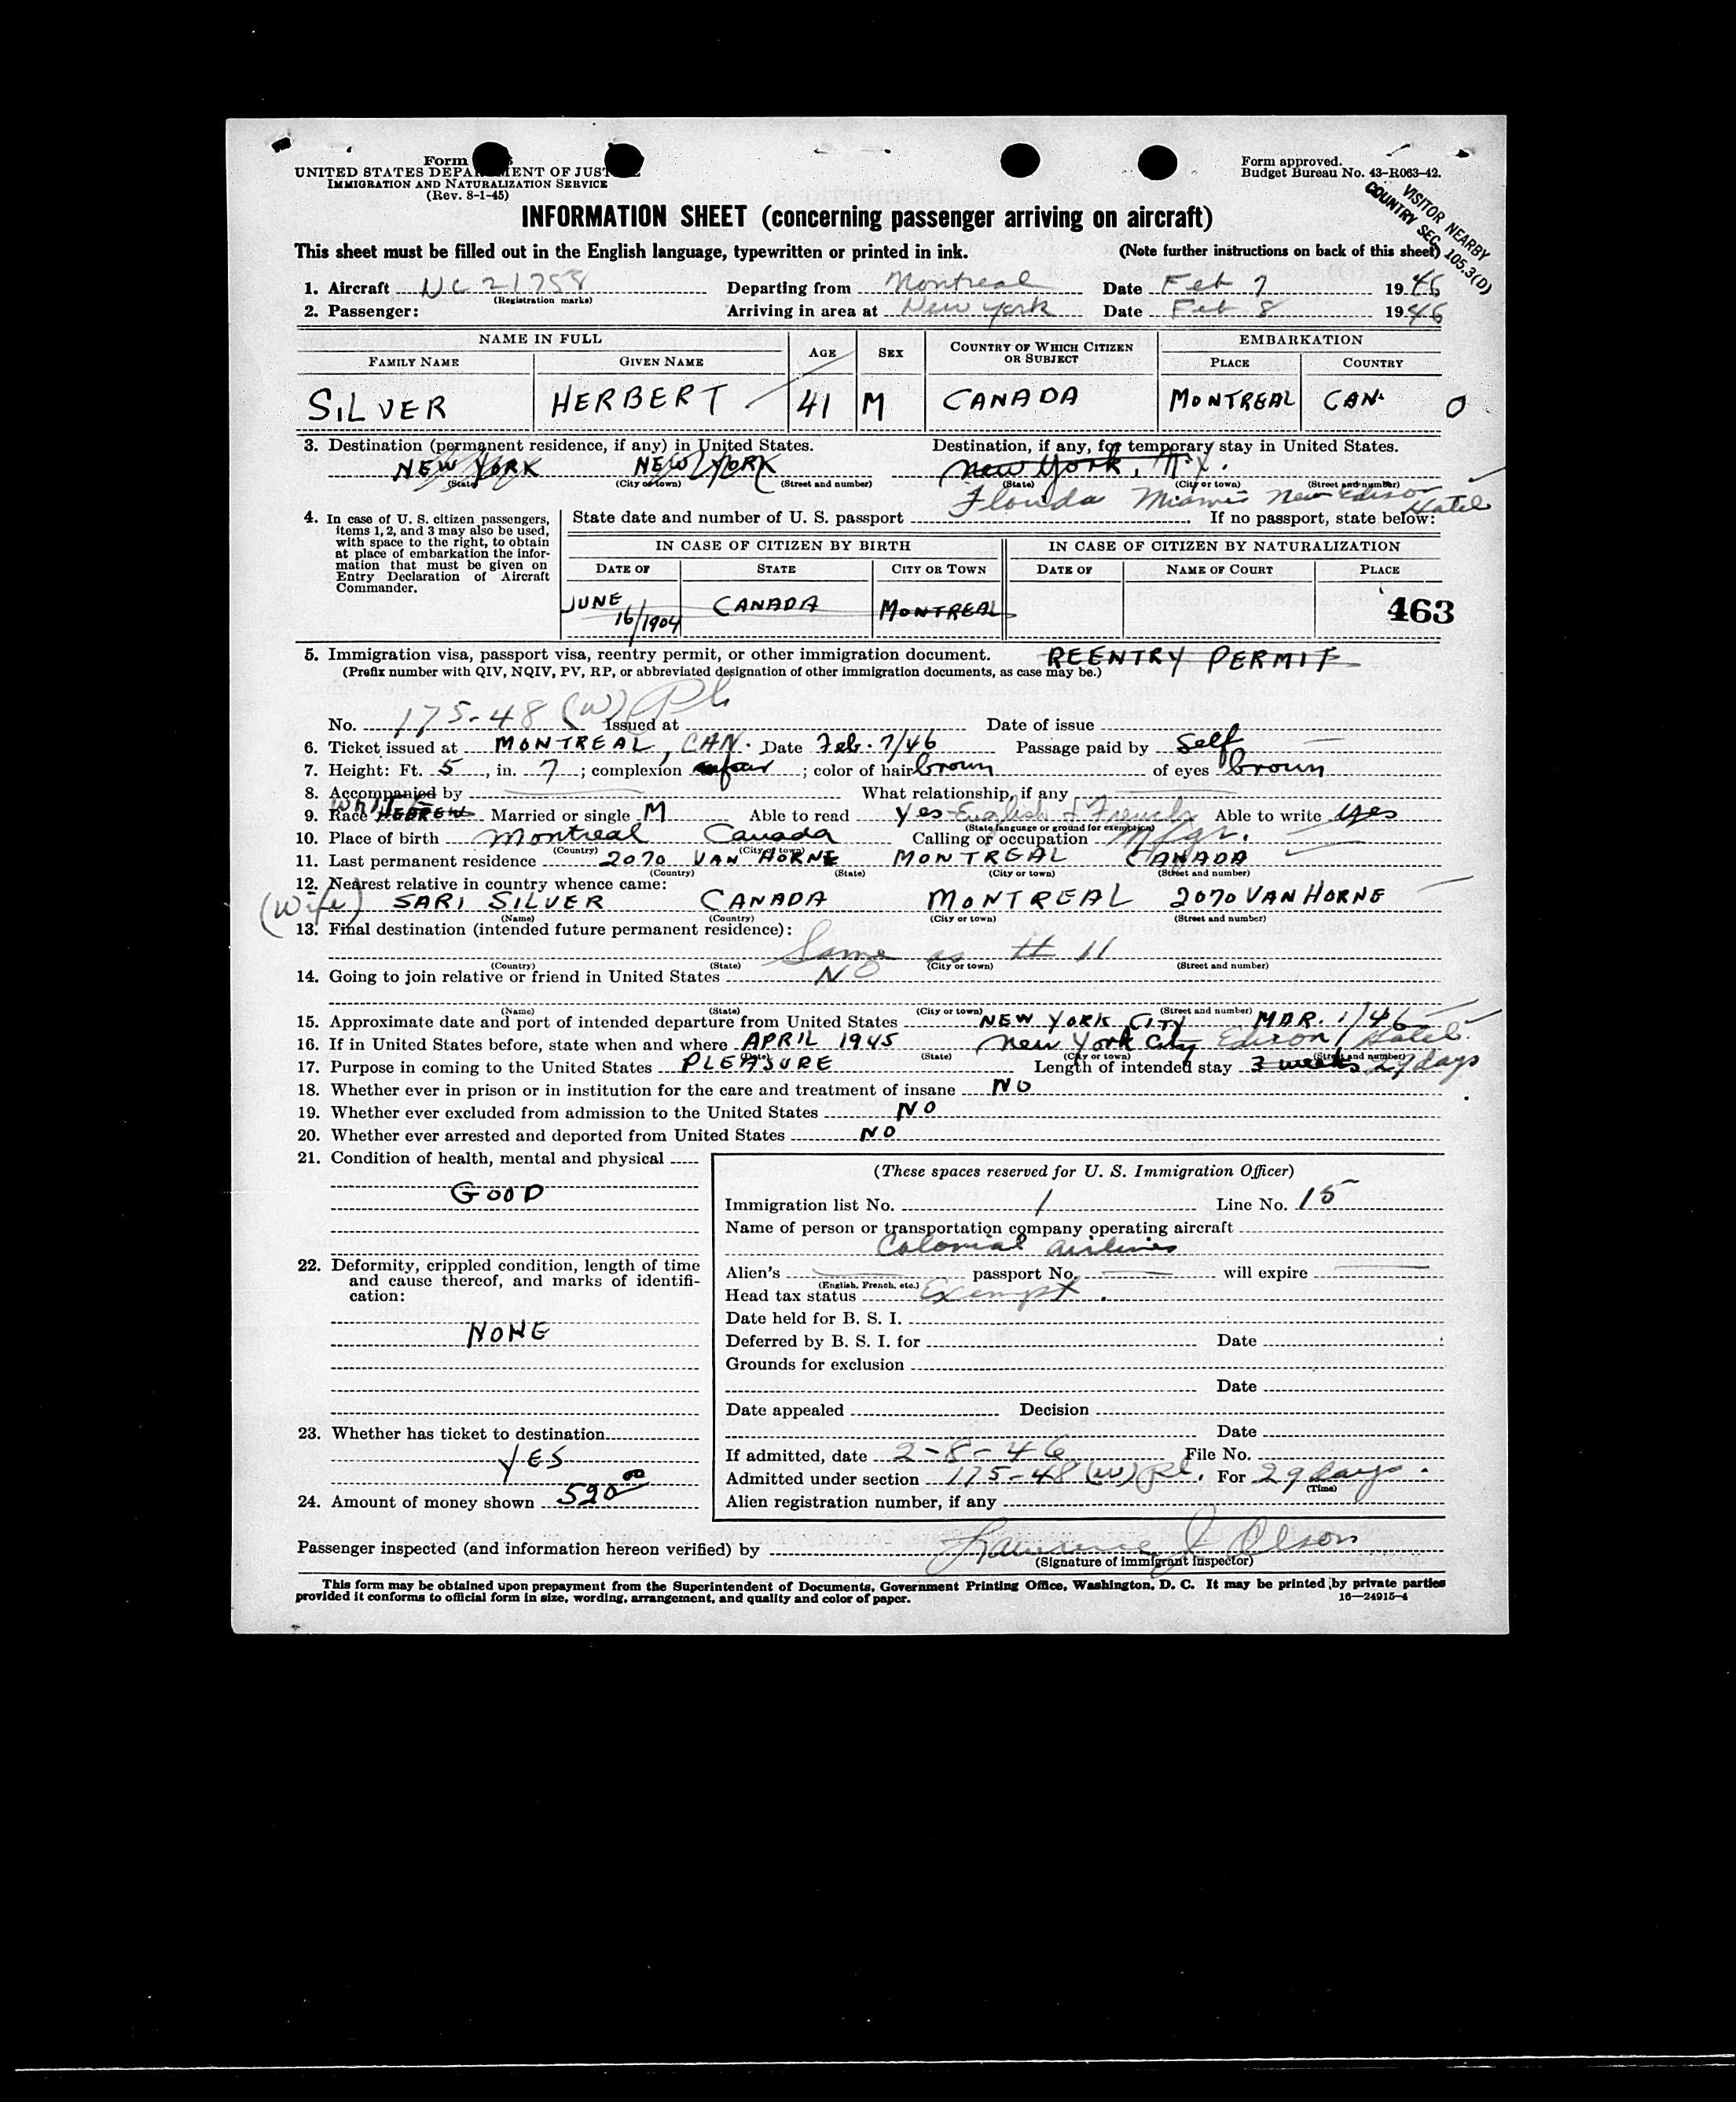 Form
UNITED STATES DEPARTMENT OF JUSTICE
IMMIGRATION AND NATURALIZATION SERVICE
(Rev. 8-1-45)
Form approved.
Budget Bureau No. 43-R063-42.
VISITOR NEARBY
COUNTRY SEC. 105.3(D)
INFORMATION SHEET (concerning passenger arriving on aircraft)
This sheet must be filled out in the English language, typewritten or printed in ink. (Note further instructions on back of this sheet)
1. Aircraft NC 21758 Departing from Montreal Date Feb 7 1946
(Registration marks)
2. Passenger: Arriving in area at New York Date Feb 8 1946
NAME IN FULL AGE SEX COUNTRY OF WHICH CITIZEN OR SUBJECT EMBARKATION
FAMILY NAME GIVEN NAME PLACE COUNTRY
SILVER HERBERT 41 M CANADA MONTREAL CAN. 0
3. Destination (permanent residence, if any) in United States. Destination, if any, for temporary stay in United States.
NEW YORK NEW YORK New York, N.Y.
(State) (City or town) (Street and number) (State) (City or town) (Street and number)
Florida Miami New Edison Hotel
4. In case of U. S. citizen passengers, items 1, 2, and 3 may also be used, with space to the right, to obtain at place of embarkation the information that must be given on Entry Declaration of Aircraft Commander.
State date and number of U. S. passport If no passport, state below:
IN CASE OF CITIZEN BY BIRTH IN CASE OF CITIZEN BY NATURALIZATION
DATE OF STATE CITY OR TOWN DATE OF NAME OF COURT PLACE
JUNE 16/1904 CANADA MONTREAL 463
5. Immigration visa, passport visa, reentry permit, or other immigration document. REENTRY PERMIT
(Prefix number with QIV, NQIV, PV, RP, or abbreviated designation of other immigration documents, as case may be.)
No. 175-48 (W) Pl. Issued at Date of issue
6. Ticket issued at MONTREAL, CAN. Date Feb. 7/46 Passage paid by Self
7. Height: Ft. 5, in. 7; complexion fair; color of hair brown of eyes brown
8. Accompanied by What relationship, if any
WHITE
9. Race HEBREW Married or single M Able to read Yes - English & French Able to write Yes
(State language or ground for exemption)
10. Place of birth Montreal Canada Calling or occupation Mfgr.
(Country) (City or town)
11. Last permanent residence 2070 VAN HORNE MONTREAL CANADA
(Country) (State) (City or town) (Street and number)
12. Nearest relative in country whence came:
(Wife) SARI SILVER CANADA MONTREAL 2070 VAN HORNE
(Name) (Country) (City or town) (Street and number)
13. Final destination (intended future permanent residence):
Same as # 11
(Country) (State) (City or town) (Street and number)
14. Going to join relative or friend in United States NO
(Name) (State) (City or town) (Street and number)
15. Approximate date and port of intended departure from United States NEW YORK CITY MAR. 1/46
16. If in United States before, state when and where APRIL 1945 New York City Edison Hotel
(Date) (State) (City or town) (Street and number)
17. Purpose in coming to the United States PLEASURE Length of intended stay 3 weeks 29 days
18. Whether ever in prison or in institution for the care and treatment of insane NO
19. Whether ever excluded from admission to the United States NO
20. Whether ever arrested and deported from United States NO
21. Condition of health, mental and physical
GOOD
22. Deformity, crippled condition, length of time and cause thereof, and marks of identification:
NONE
23. Whether has ticket to destination
YES
24. Amount of money shown 520 00
(These spaces reserved for U. S. Immigration Officer)
Immigration list No. 1 Line No. 15
Name of person or transportation company operating aircraft
Colonial Airlines
Alien's passport No. will expire
(English, French, etc.)
Head tax status Exempt.
Date held for B. S. I.
Deferred by B. S. I. for Date
Grounds for exclusion
Date
Date appealed Decision
Date
If admitted, date 2-8-46 File No.
Admitted under section 175-48 (W) Pl. For 29 days.
(Time)
Alien registration number, if any
Passenger inspected (and information hereon verified) by Lawrence J Olson
(Signature of immigrant inspector)
This form may be obtained upon prepayment from the Superintendent of Documents, Government Printing Office, Washington, D. C. It may be printed by private parties
provided it conforms to official form in size, wording, arrangement, and quality and color of paper. 16—24915-4